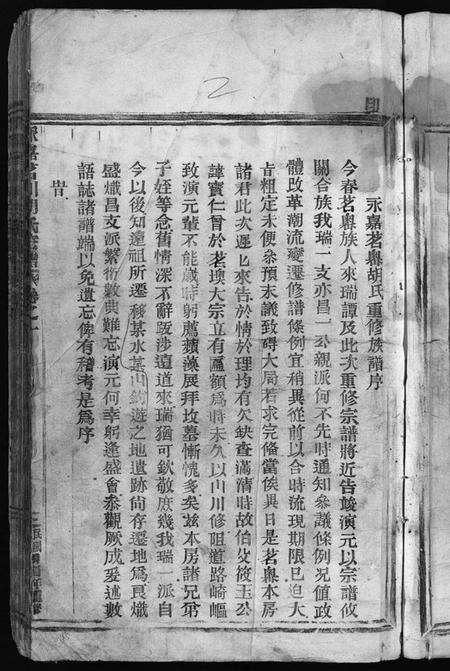 永嘉茗嶴胡氏重修族譜序
今春茗嶴族人來瑞譚及此次重修宗譜將近告竣演元以宗譜攸
關合族我瑞一支亦昌一公親派何不先時通知參議條例況值政
體改革潮流變遷修譜條例宜稍異從前以合時流現期限已迫大
旨粗定未便參預末議致碍大局若求完備當俟異日是茗嶴本房
諸君此次遲以來告於情於理均有欠缺查滿清時故伯父筱玉公
諱寅仁曾於茗墺大宗立有匾額為時未久以山川修阻道路崎嶇
致演元輩不能歲時躬薦蘋藻展拜坟墓慚愧多矣茲本房諸兄弟
子姪等念舊情深不辭跋涉遠道來瑞猶可欽敬庶幾我瑞一派自
今以後知遠祖所遷移某水某山釣遊之地遺跡尚存遷地為良熾
盛熾昌支派繁衍數典難忘演元何幸躬逢盛會恭觀厥成爰述數
語誌諸譜端以免遺忘俾有稽考是為序
旹
2